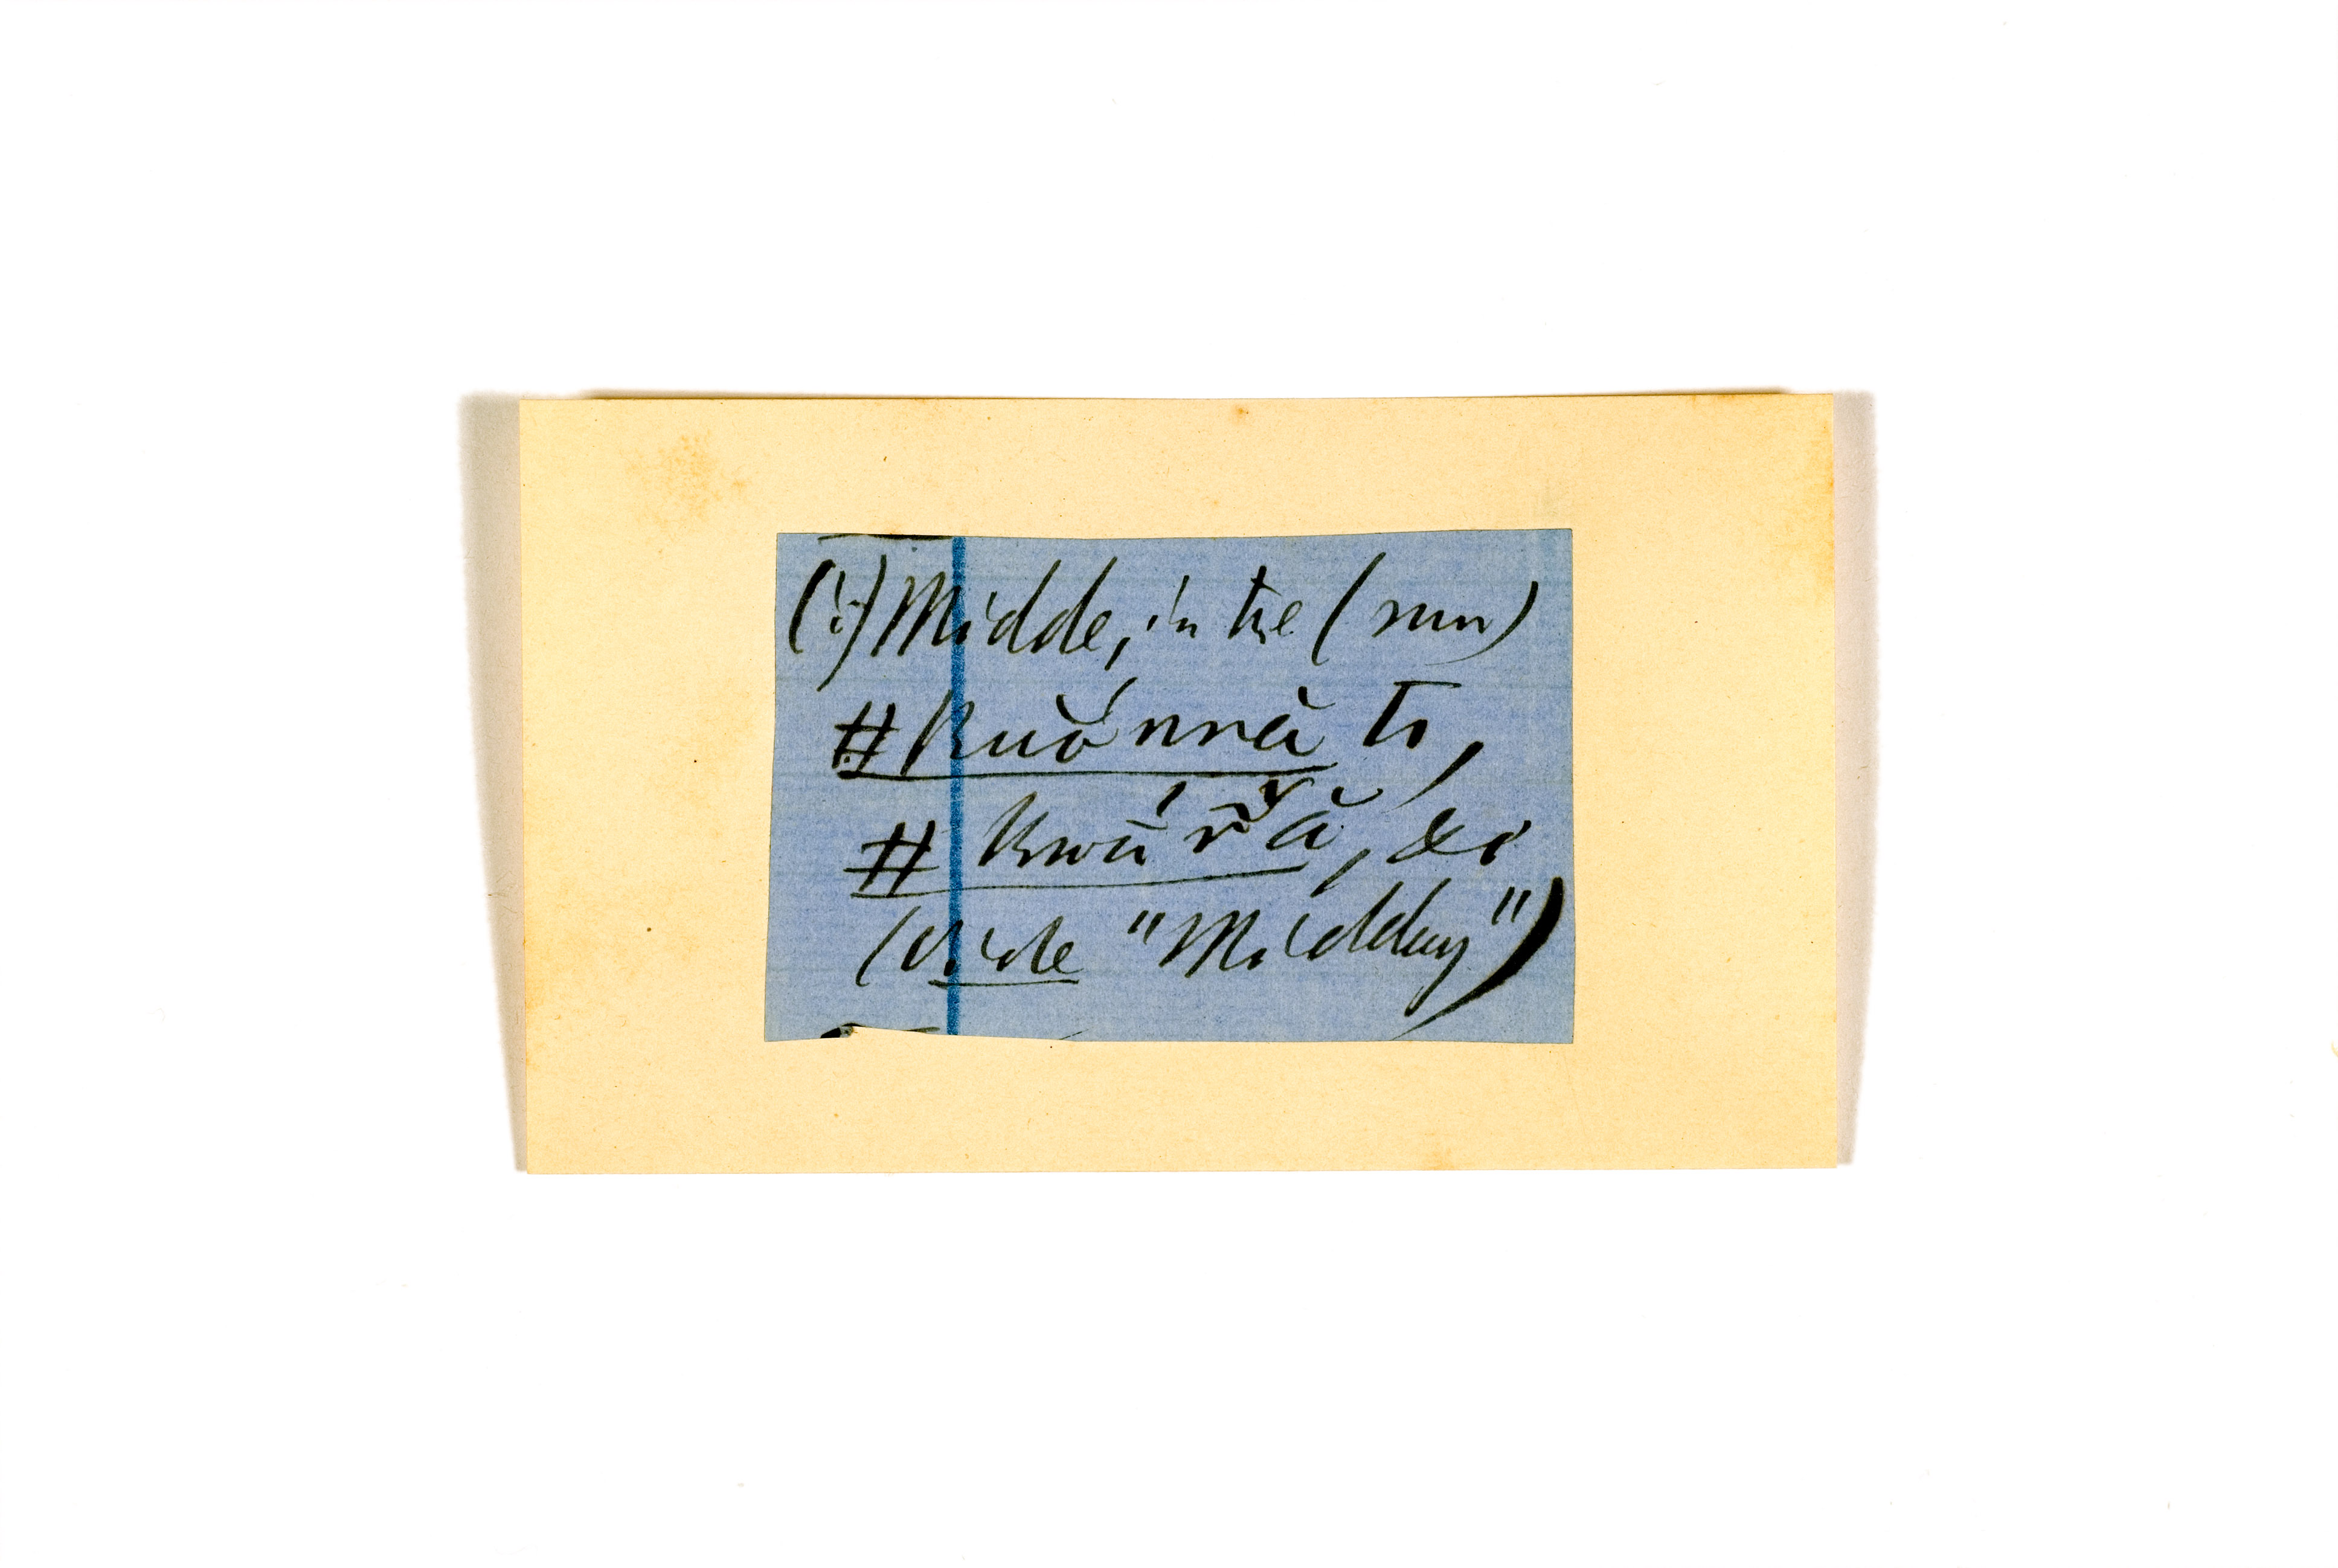 (?) Midde, in the (sun)
# Kuŏ́nnă to,
# Kwā́ r̃ă, do
(vide "Midday")